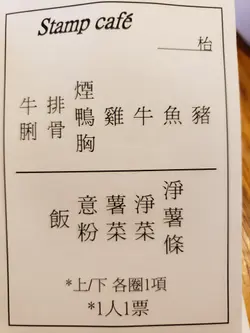 Stamp café
枱
豬
魚
牛
雞
煙鴨胸
排骨
牛脷
淨薯條
淨菜
薯菜
意粉
飯
*上/下 各圈1項
*1人1票